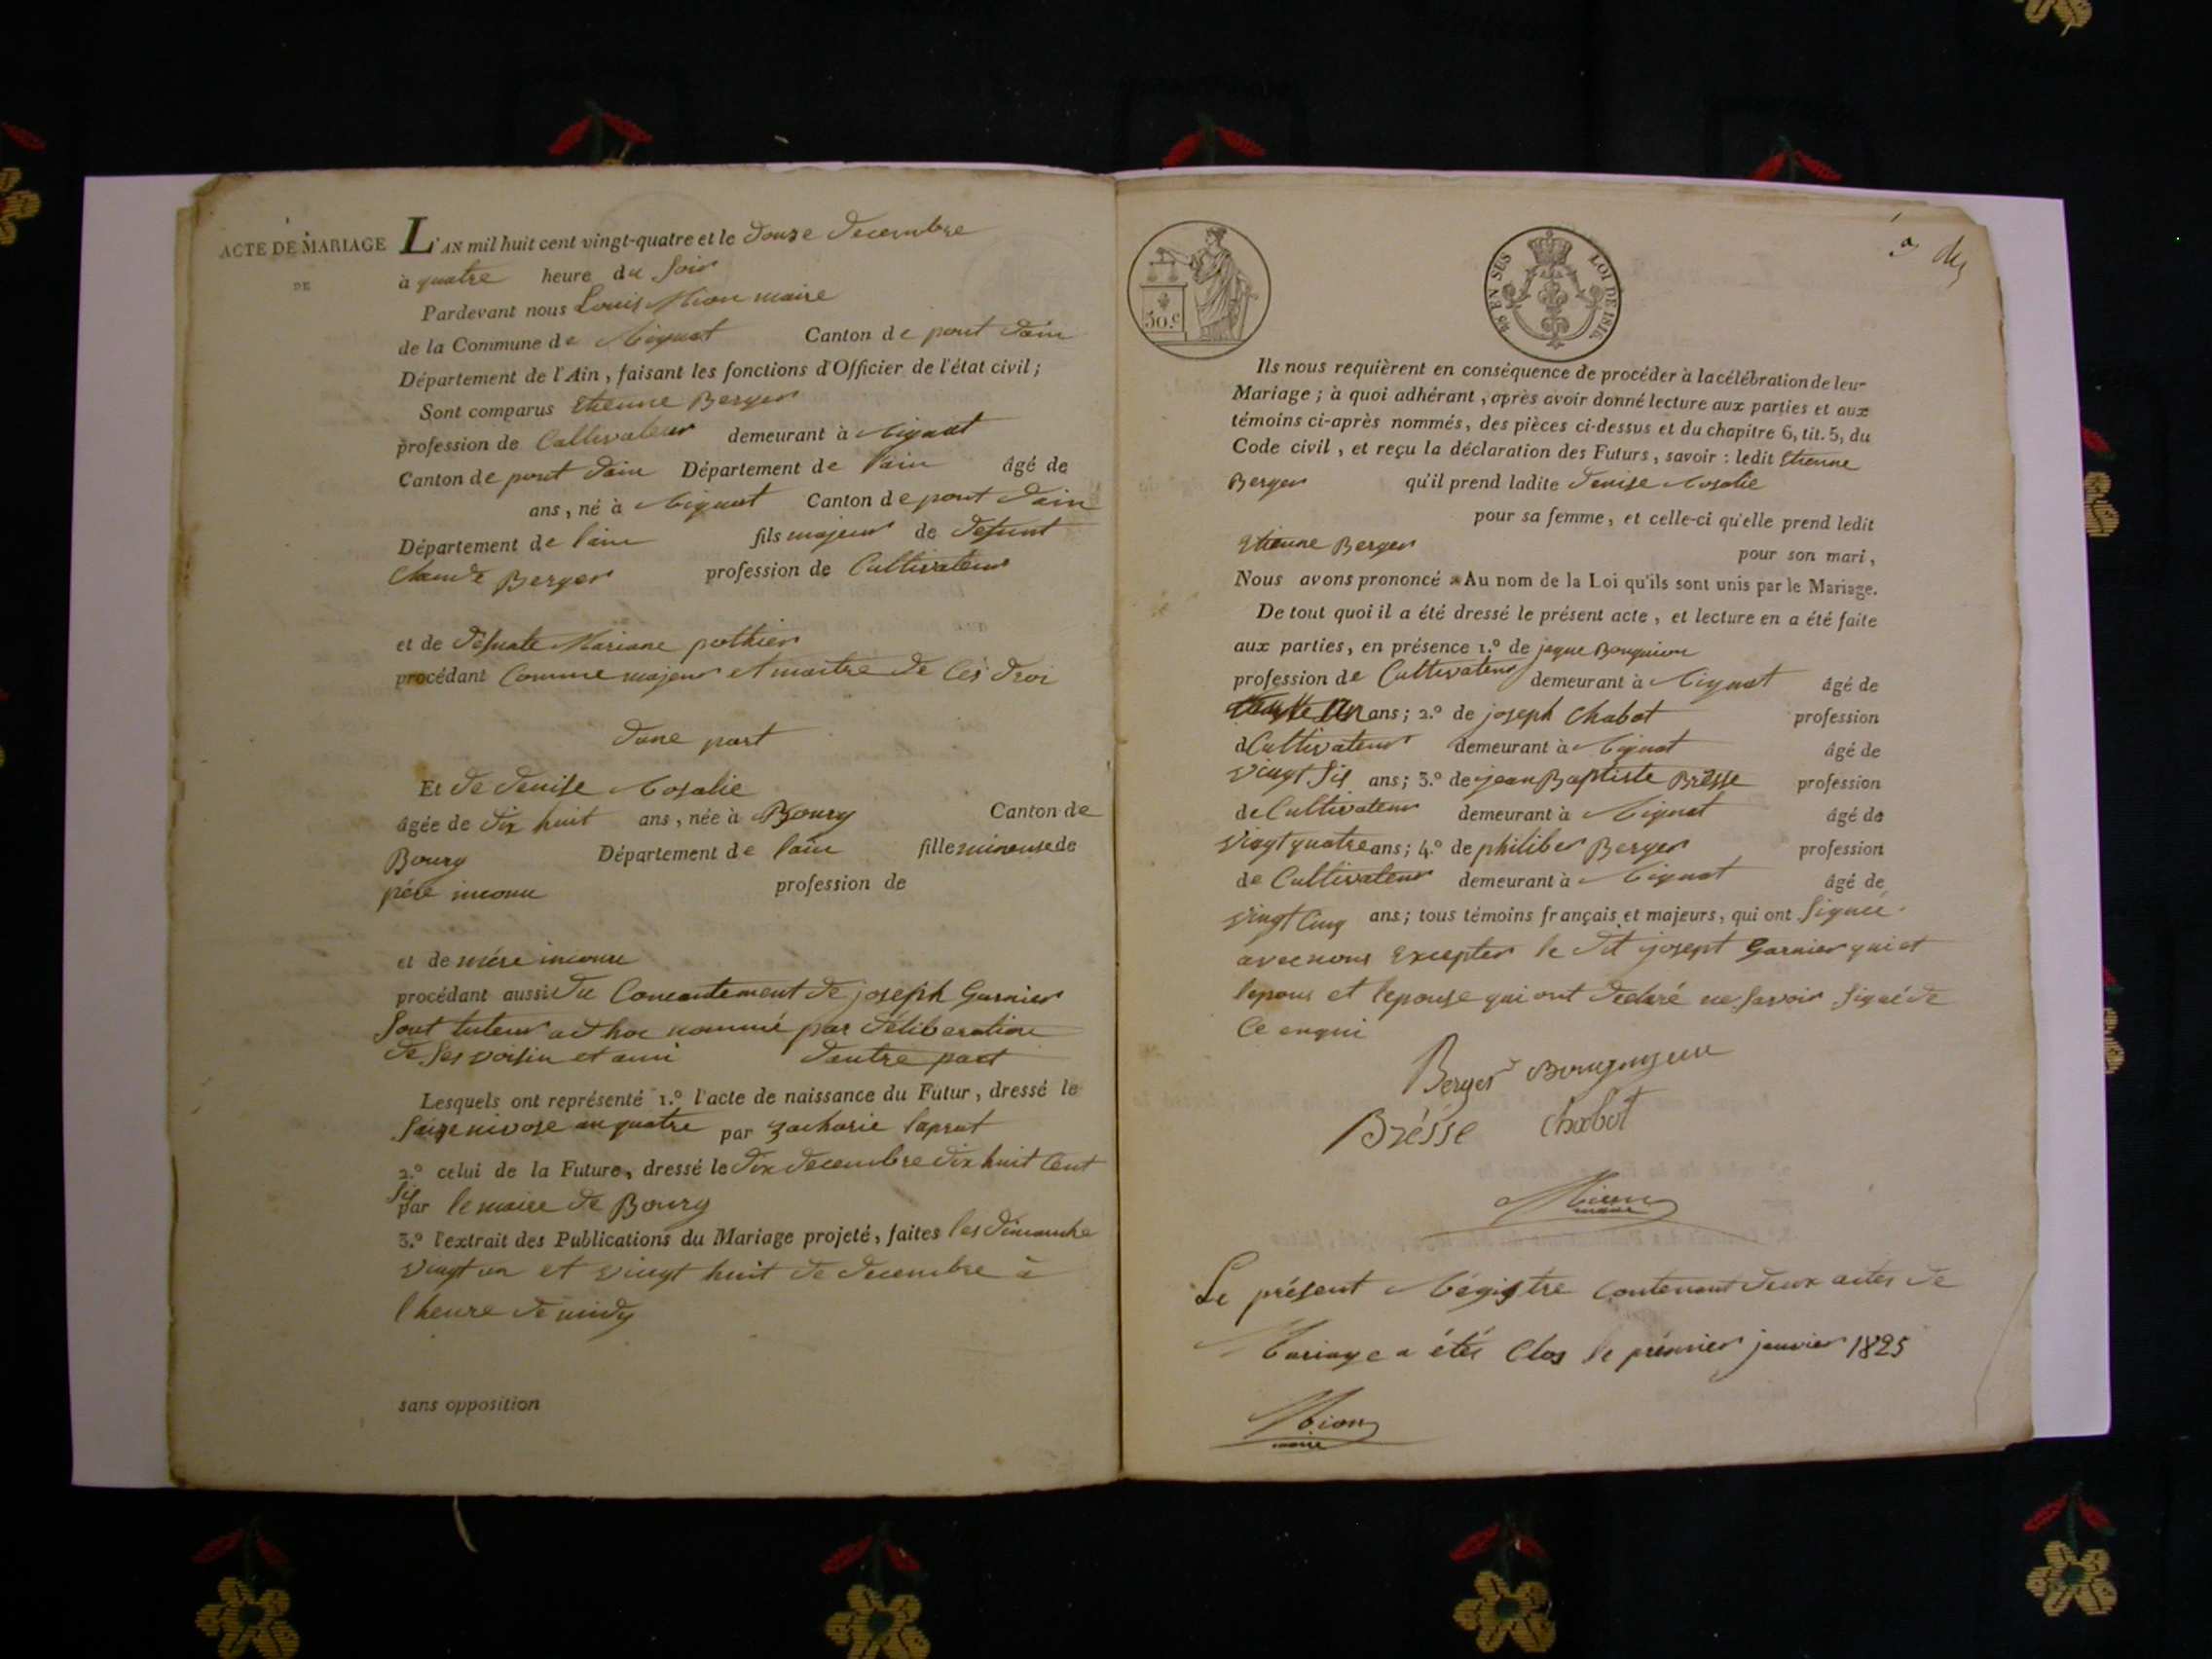 ACTE DE MARIAGE
DE
L'AN mil huit cent vingt-quatre et le douze decembre
à quatre heure du soir
Pardevant nous Louis maire
de la Commune de Canton de pont dain
Département de l'Ain, faisant les fonctions d'Officier de l'état civil;
Sont comparus Etienne Berger
profession de Cultivateur demeurant à
Canton de pont dain Département de lain âgé de
ans, né à Canton de pont dain
Département de lain fils majeur de defunt
Claude Berger profession de Cultivateur
et de défunte Mariane pothier
procédant Comme majeur et maitre de Ces droi
dune part
Et de denise Rosalie
âgée de dix huit ans, née à Bourg Canton de
Bourg Département de lain fille mineuse de
père inconu profession de
et de mére inconu
procédant aussi du Concentement de joseph Garnier
Sont tuteur ad hoc nommé par déliberation
de Ses voisin et ami dautre part
Lesquels ont représenté 1.º l'acte de naissance du Futur, dressé le
Seize nivose an quatre par zacharie laprat
2.º celui de la Future, dressé le dix decembre dix huit Cent
Six
par le maire de Bourg
3.º l'extrait des Publications du Mariage projeté, faites les dimanche
vingt un et vingt huit de decembre à
lheure de midy
sans opposition
50.c
LOI DE 1816.
Ils nous requièrent en conséquence de procéder à la célébration de leur
Mariage; à quoi adhérant, après avoir donné lecture aux parties et aux
témoins ci-après nommés, des pièces ci-dessus et du chapitre 6, tit. 5, du
Code civil, et reçu la déclaration des Futurs, savoir: ledit Etienne
Berger qu'il prend ladite denise Rosalie
pour sa femme, et celle-ci qu'elle prend ledit
Etienne Berger pour son mari,
Nous avons prononcé Au nom de la Loi qu'ils sont unis par le Mariage.
De tout quoi il a été dressé le présent acte, et lecture en a été faite
aux parties, en présence 1.º de jaque
profession de Cultivateur demeurant à âgé de
ans; 2.º de joseph Chabot profession
d Cultivateur demeurant à âgé de
vingt Six ans; 3.º de jean Baptiste Brésse profession
de Cultivateur demeurant à âgé de
vingt quatre ans; 4.º de philiber Berger profession
de Cultivateur demeurant à âgé de
vingt Cinq ans; tous témoins français et majeurs, qui ont Signée
avec nous Excepter le dit josept Garnier qui et
lepous et lepouse qui ont declaré ne Savoir Signé de
Ce enqui
Berger
Brésse Chabot
maire
Le présent Régistre Contenant deux actes de
Mariage a étés Clos le prémier janvier 1825
maire